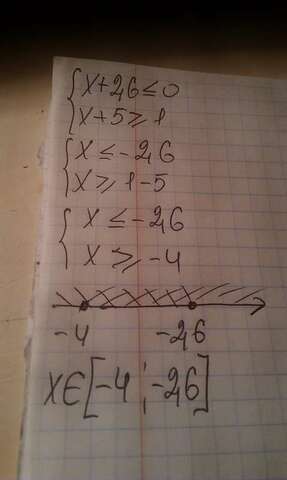 {x+26≤0
{x+5≥1
{x≤-26
{x≥1-5
{x≤-26
{x≥-4
-4 -26
x∈[-4;-26]